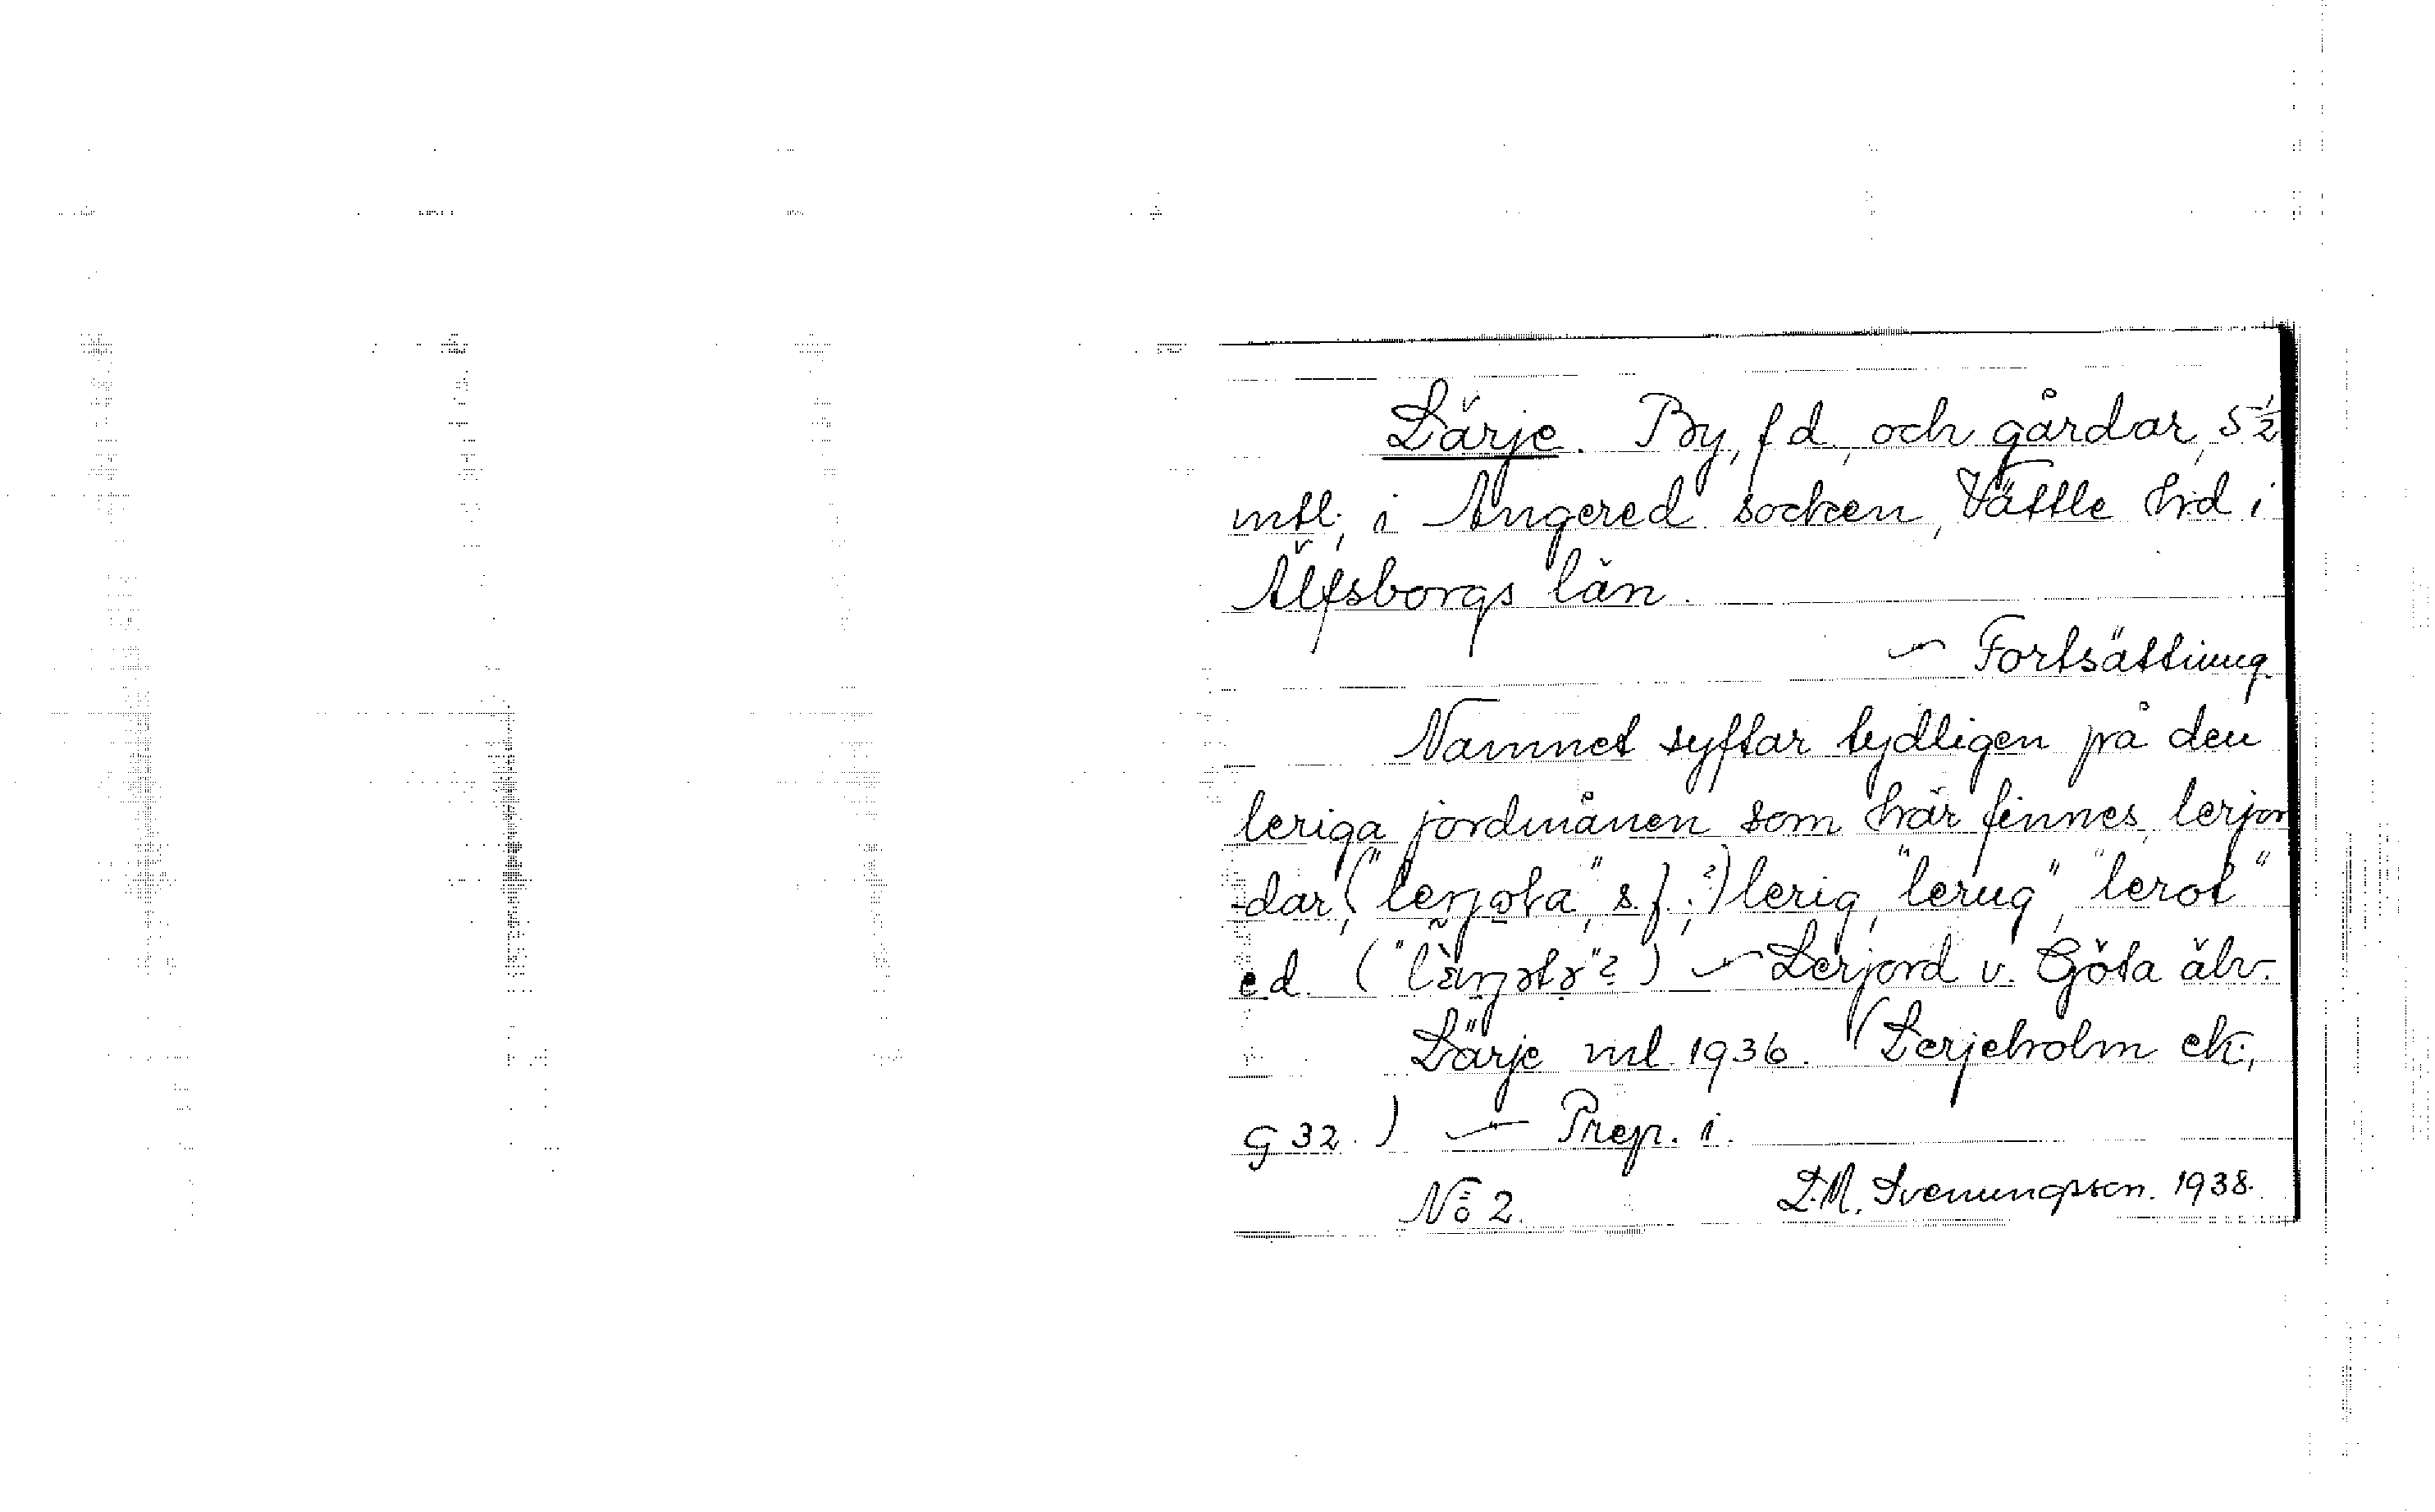 Lärje. By, f d, och gårdar, 5 1/2
mtl, i Angered socken, Vättle hd i
Älfsborgs län.
— Fortsättning
Namnet syftar tydligen på den
leriga jordmånen som här finnes, lerjor
-dar, s.f.;?) lerig, "lerug", "lerot"
e.d. — Lerjord v. Göta älv.
Lärje ml. 1936. (Lerjeholm ek.,
G 32.) — Prep. i.
No 2. L.M. Svenungsson. 1938.